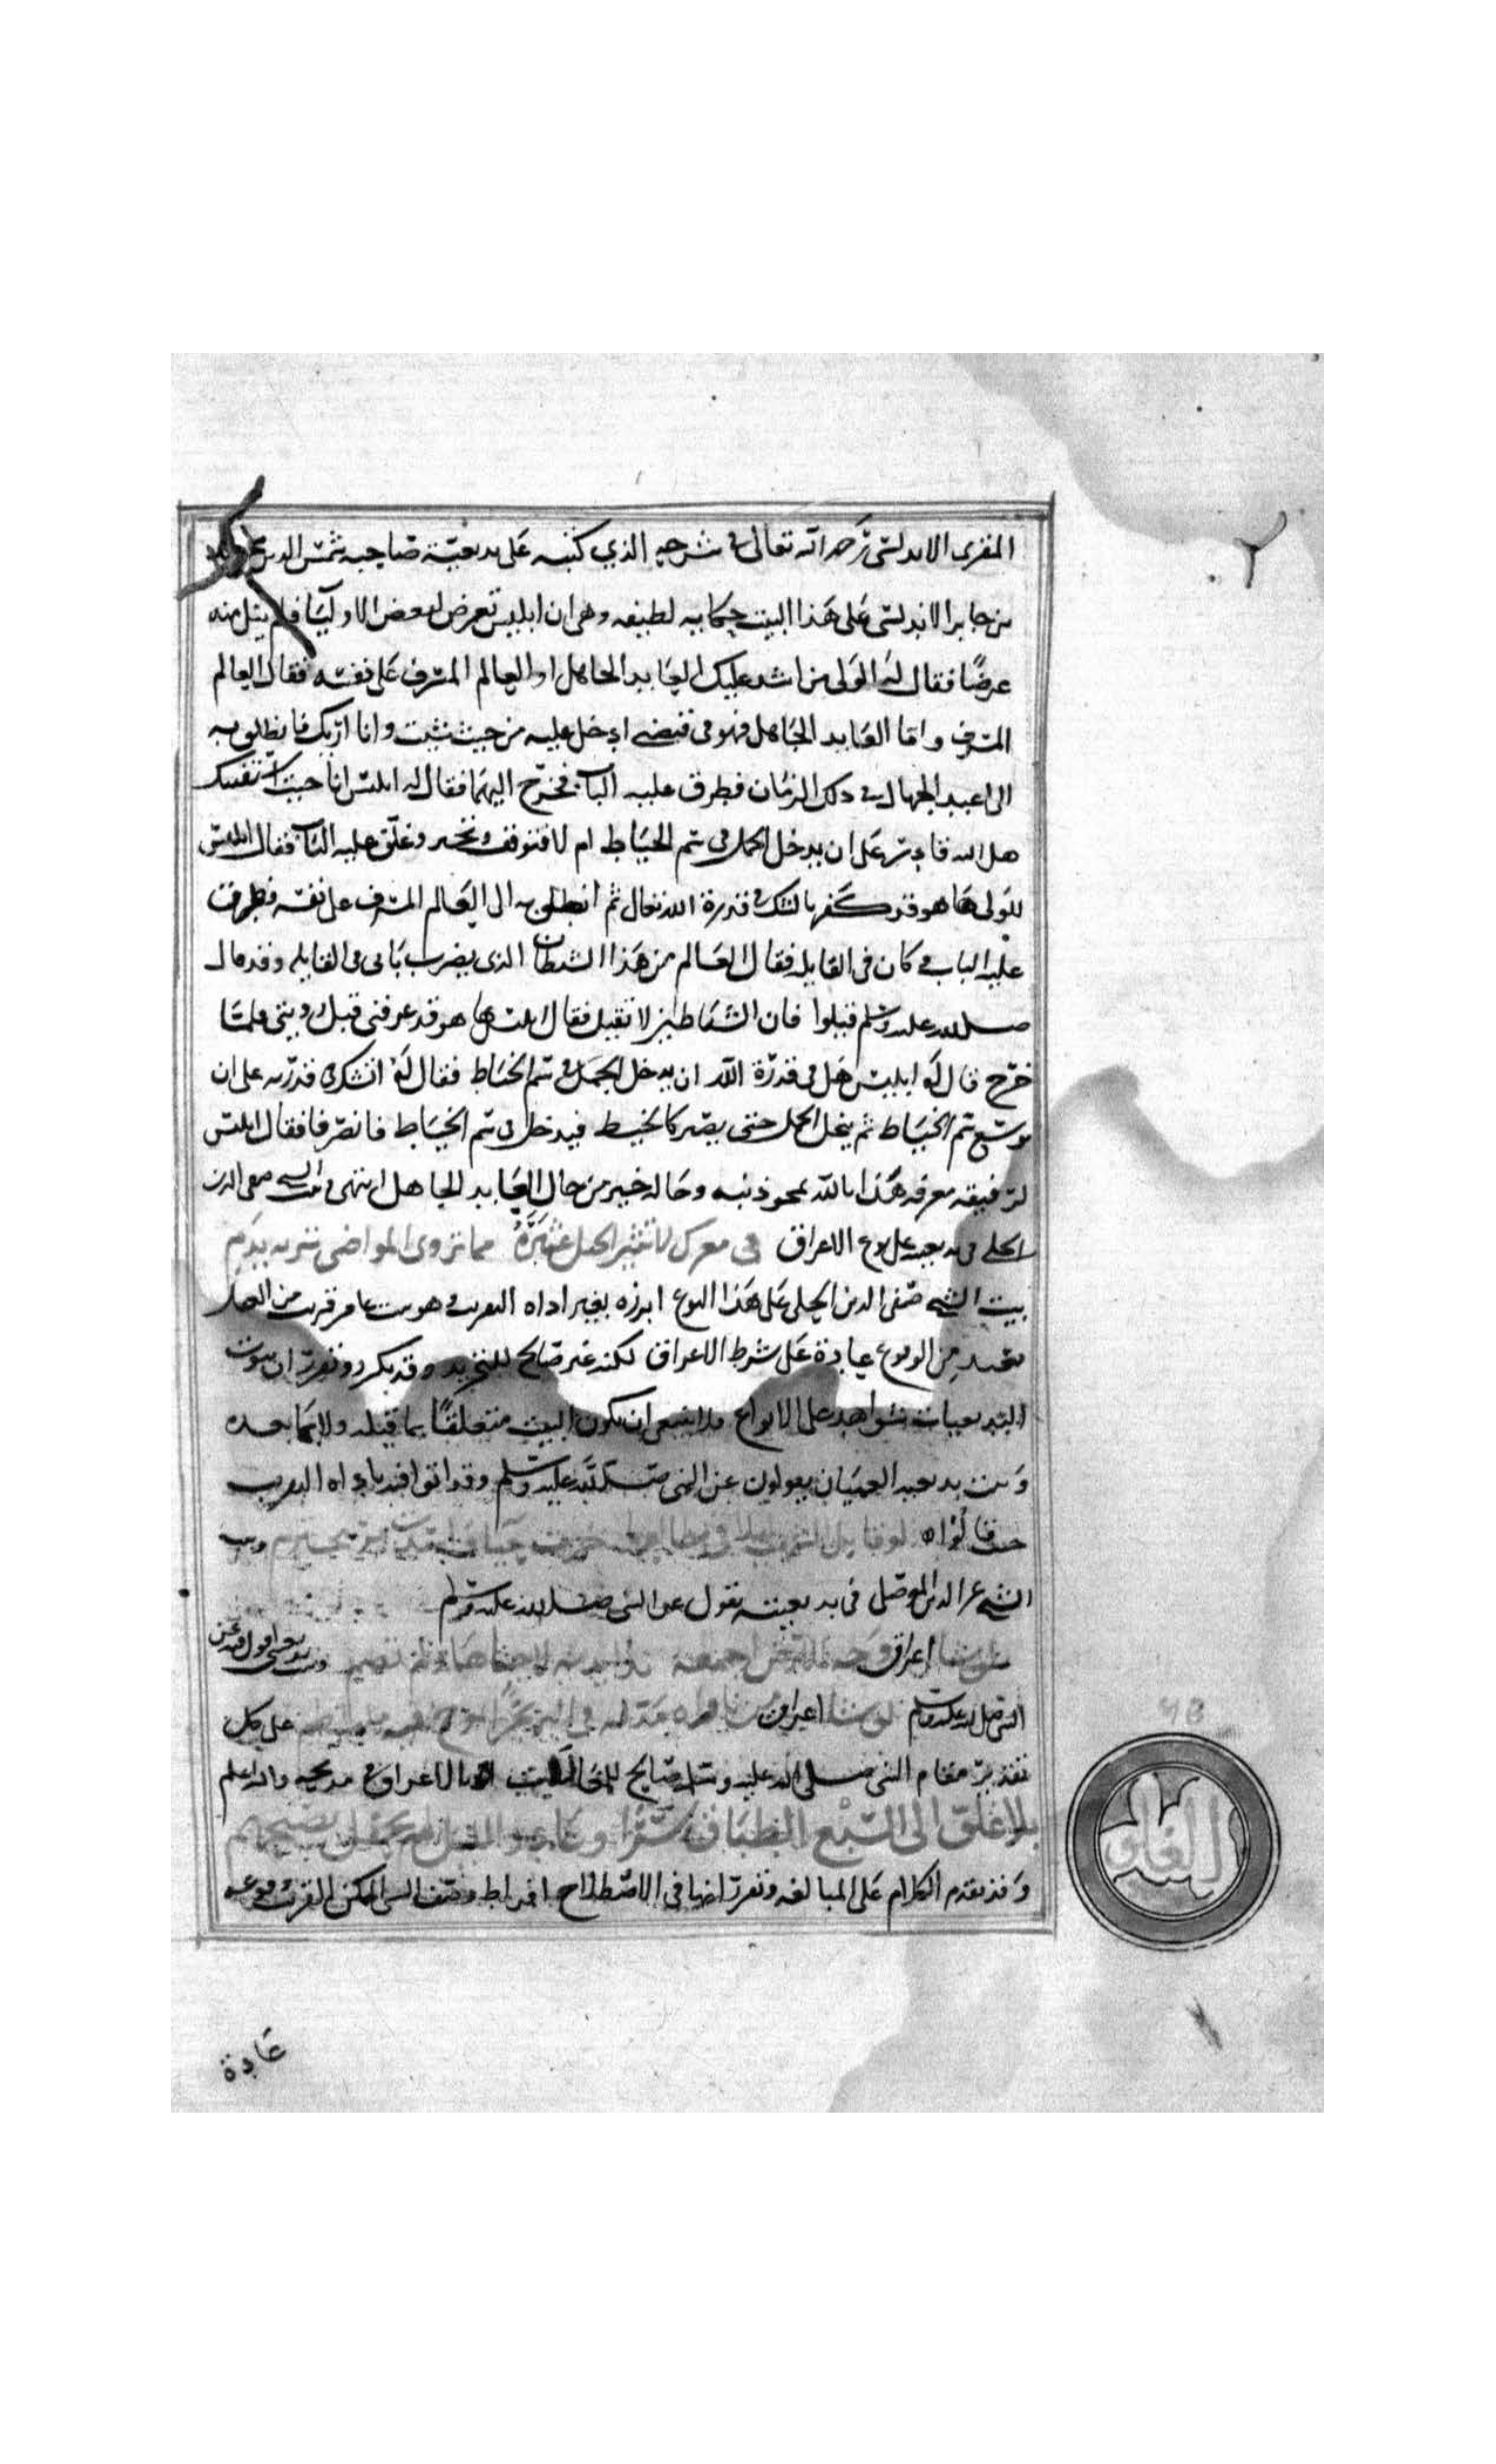 المقرى الاندلسى رحمه الله تعالى فى شرحه الذي كتبه على بديعية صاحبه شمس الدين
بن جابر الاندلسى على هذا البيت حكايه لطيفه وهى ان ابليس تعرض لبعض الاوليا فلم ينل منه
عرضا فقال له الولى من اشد عليك العابد الجاهل او العالم المسرف على نفسه فقال العالم
المسرف واما العابد الجاهل فهو فى قبضى ادخل عليه من حيث شيت وانا اريك فانطلق به
الى اعبد الجهال فى ذلك الزمان فطرق عليه الباب فخرج اليهما فقال له ابليس انا جيت استفتيك
هل الله قادر على ان يدخل الجمل فى سم الخياط ام لا فتوقف وتحير وغلق عليه الباب فقال ابليس
للولى ها هو قد كفر بالشك فى قدرة الله تعالى ثم انطلق به الى العالم المسرف على نفسه فطرق
عليه الباب وكان فى القايله فقال العالم من هذا الشيطان الذى يضرب بابى فى القايله وقد قال
صلى الله عليه وسلم قيلوا فان الشياطين لا تقيل فقال ابليس ها هو قد عرفنى قبل رويتى فلما
خرج قال له ابليس هل فى قدرة الله ان يدخل الجمل فى سم الخياط فقال له اتشك فى قدرته على ان
يوسع سم الخياط ثم ينحل الجمل حتى يصير كالخيط فيدخل فى سم الخياط فانصرفا فقال ابليس
لرفيقه معرفه هذا بالله تمحو ذنبه وحاله خير من حال العابد الجاهل انتهى وبيت الشيخ صفى الدين
الحلى فى بديعيته على نوع الاغراق فى معرك لا تثير الخيل عثيره مما تروى المواضى تربه بدم
بيت الشيخ صفى الدين الحلى على هذا النوع ابرزه بغير اداه التقريب وهو بيت عامر قربت من العقل
الوقوع عادة على شرط الاغراق لكنه غير صالح للتجريد وقد تكرر وتقرر ان بيوت
البديعيات شواهد على الانواع فلا ينبغى ان يكون البيت متعلقا بما قبله ولا بما بعده
وبيت بديعية العميان يقولون عن النبى صلى الله عليه وسلم وقد اتوا فيه باداه التقريب
حيث قالوا لو قابل الشهب ليلا فى مطالعها خرت وبيت
الشيخ عز الدين الموصلى فى بديعيته يقول عن النبى صلى الله عليه وسلم
لو شا اغراق وبيت بديعيتى اقول فيه عن
النبى صلى الله عليه وسلم لو شا اغراق من ناواه مد له فى البر بحرا على كل
تقدير مقام النبى صلى الله عليه وسلم صالح بالاغراق فى مديحه والله اعلم
بلا غلو الى السبع الطباق سرى وعاد والليل لم يحفل بصبحهم
الغلو
وقد تقدم الكلام على المبالغه وتقرر انها فى الاصطلاح افراط وصف الشى الممكن القريب وقوعه
عادة